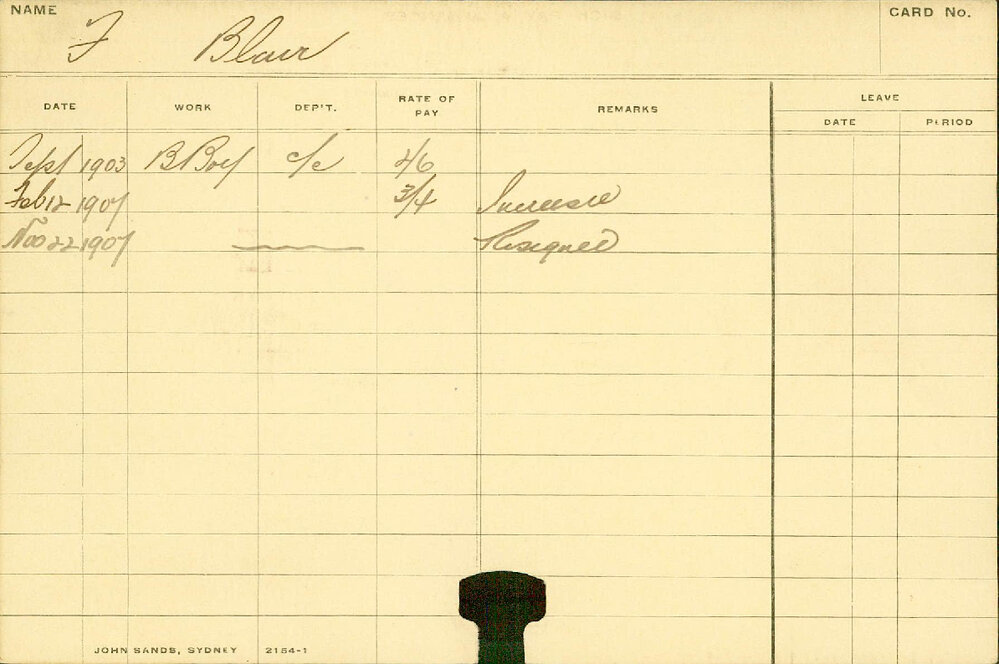 NAME
CARD No.
F Blair
DATE WORK DEP'T. RATE OF PAY REMARKS LEAVE
DATE PERIOD
Sept 1903 B Boy c/c 2/6
Feb 12 1907 3/4 Increase
Nov 22 1907 Resigned
JOHN SANDS, SYDNEY 2154-1